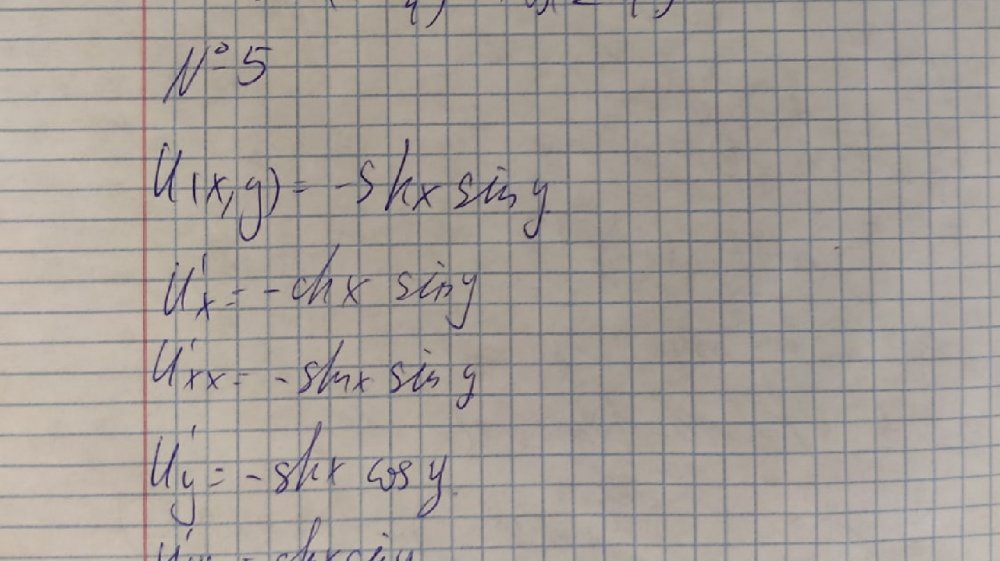 №5
U(x,y) = -shx siny
U'x = -chx siny
U'xx = -shx siny
U'y = -shx cosy